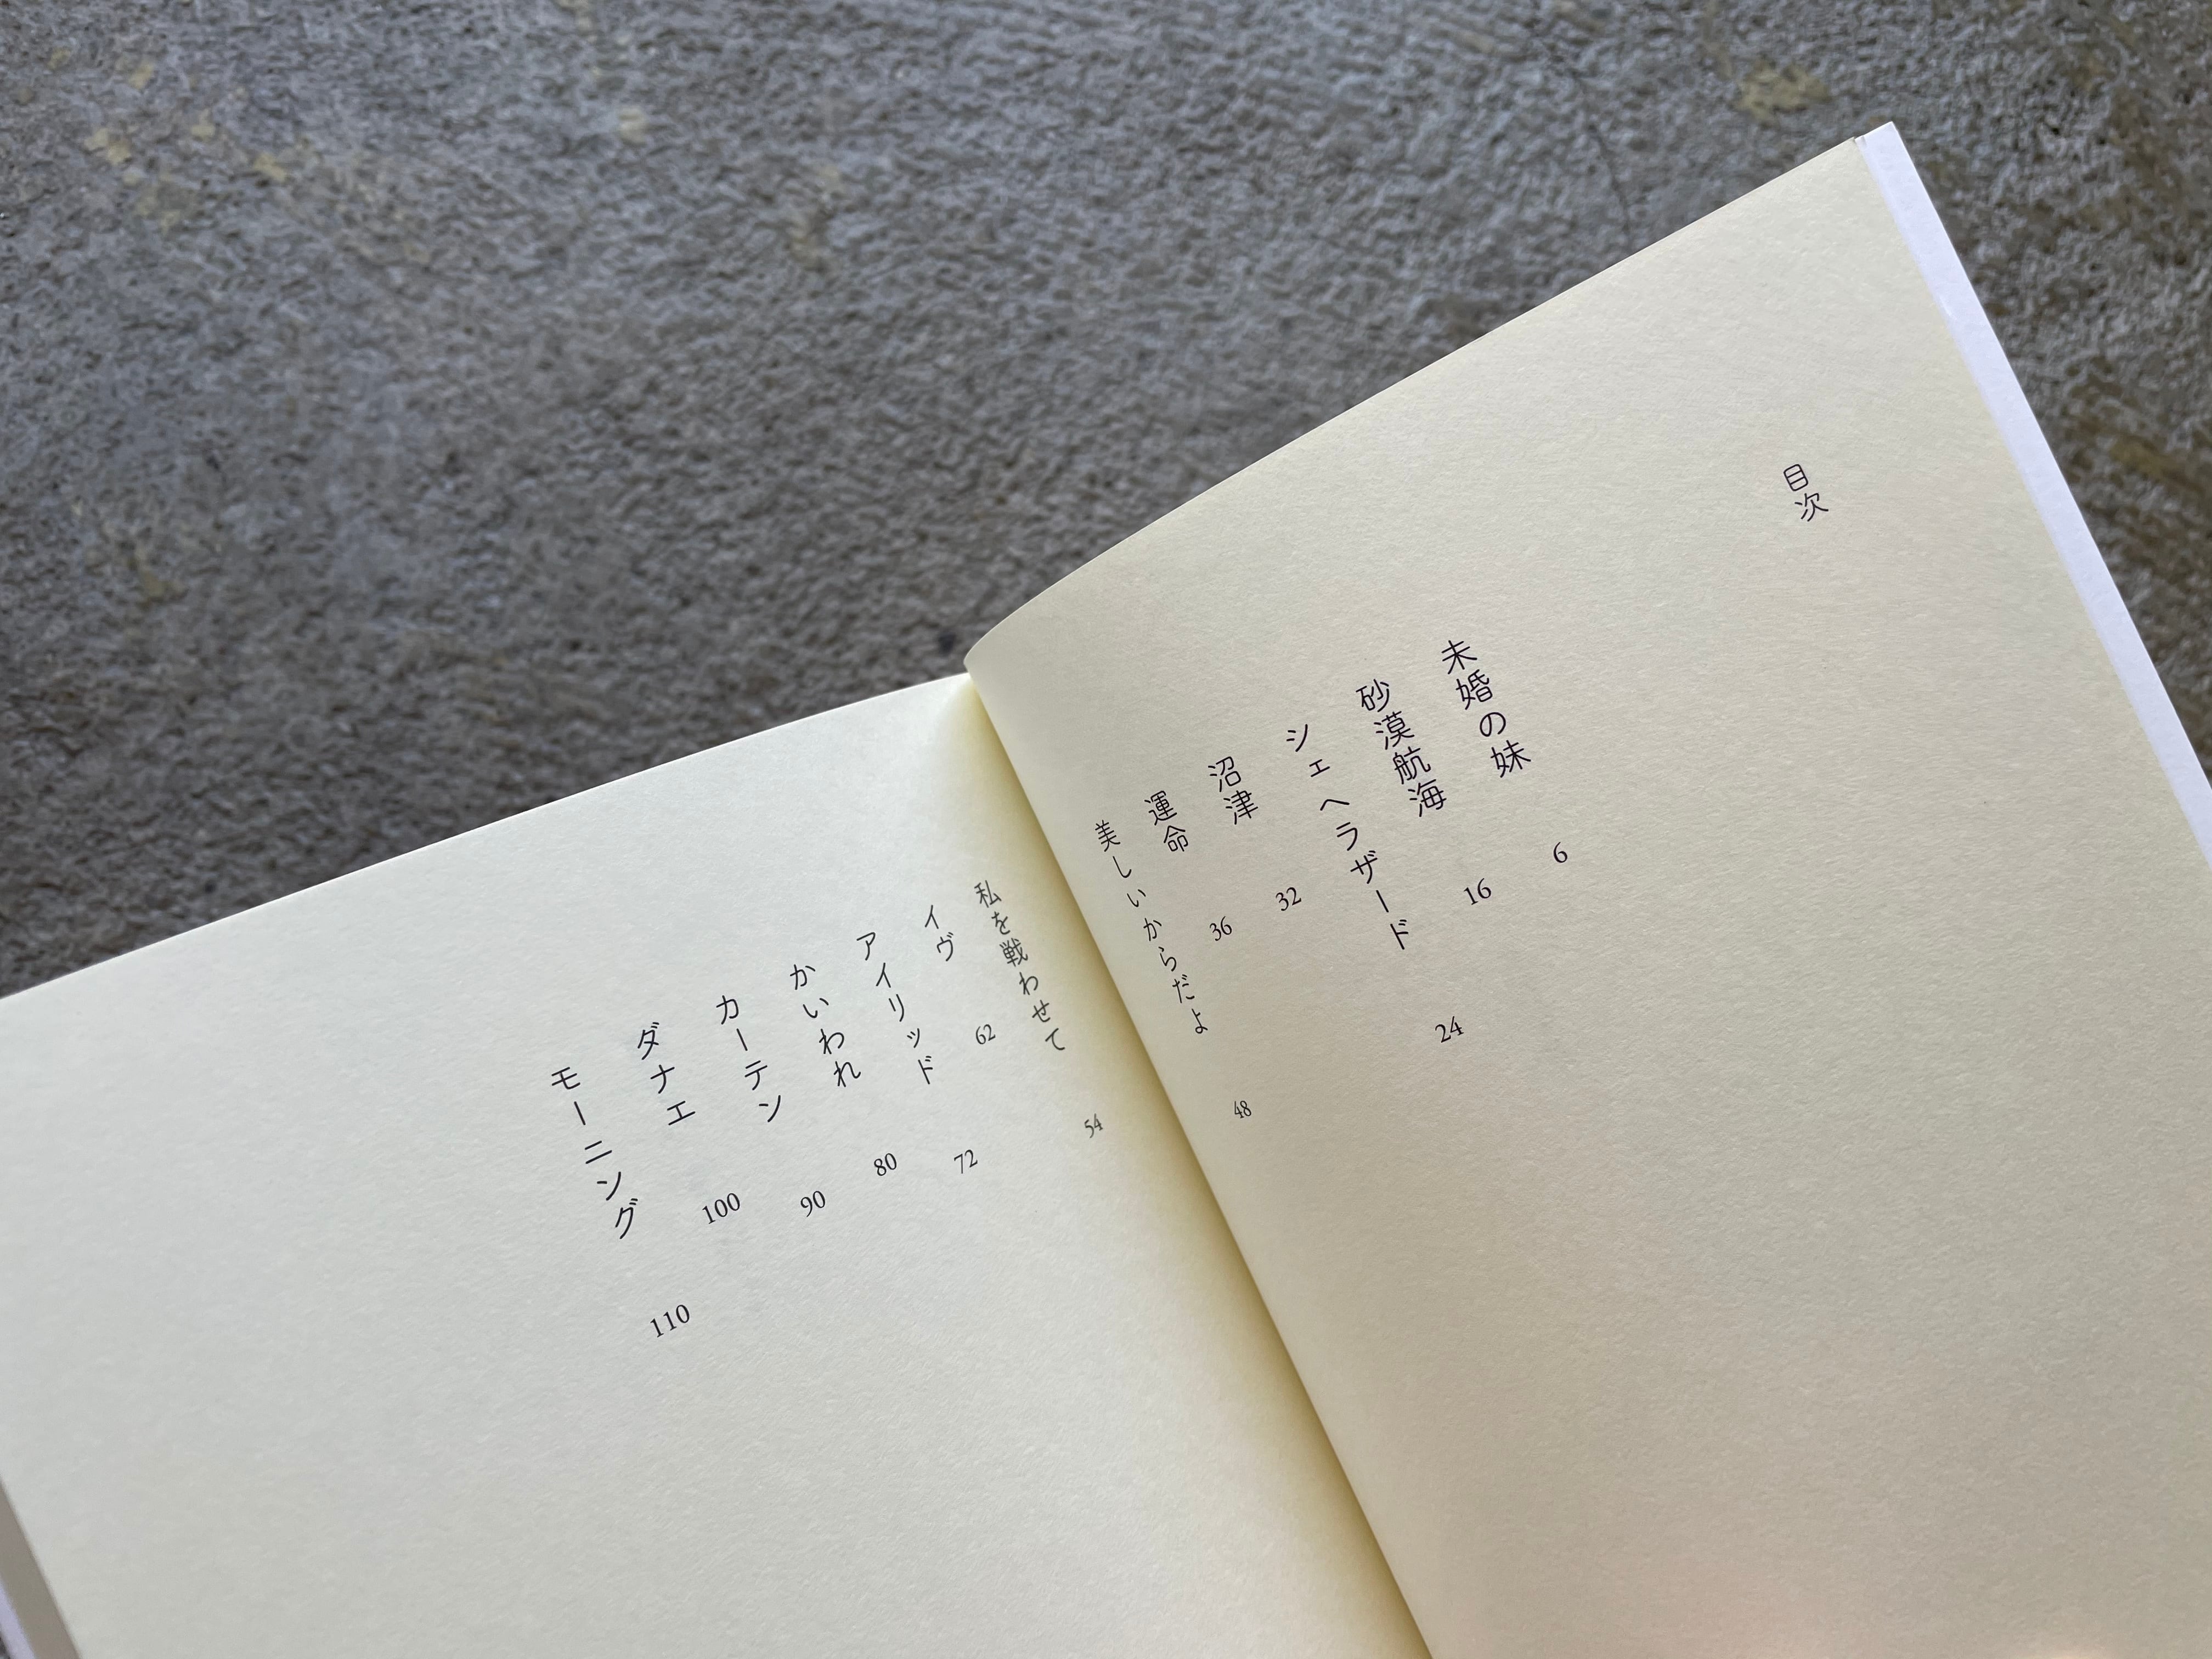 目次
未婚の妹 6
砂漠航海 16
シェヘラザード 24
沼津 32
運命 36
美しいからだよ 48
私を戦わせて 54
イヴ 62
アイリッド 72
かいわれ 80
カーテン 90
ダナエ 100
モーニング 110